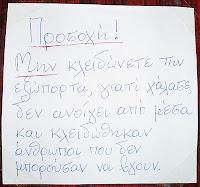 Προσοχή!
Μην κλειδώνετε την
εξώπορτα, γιατί χάλασε,
δεν ανοίγει από μέσα
και κλειδώθηκαν
άνθρωποι που δεν
μπορούσαν να βγουν.